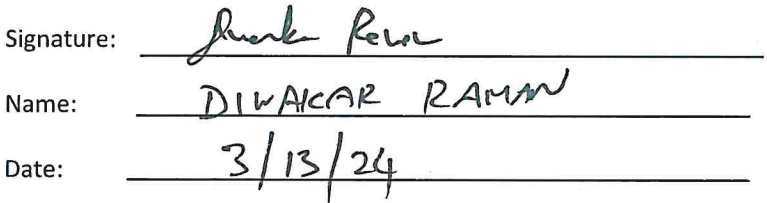 Signature:
Name: DIWAKAR RAMAN
Date: 3/13/24